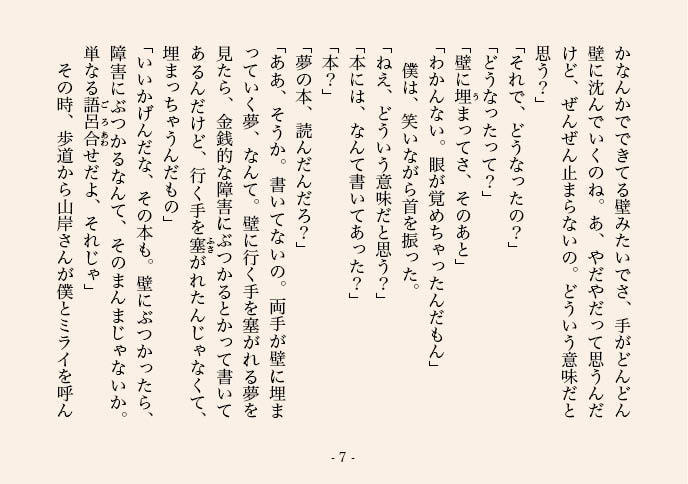 かなんかでできてる壁みたいでさ、手がどんどん
壁に沈んでいくのね。あ、やだやだって思うんだ
けど、ぜんぜん止まらないの。どういう意味だと
思う？」
「それで、どうなったの？」
「どうなったって？」
「壁に埋まってさ、そのあと」
「わかんない。眼が覚めちゃったんだもん」
　僕は、笑いながら首を振った。
「ねえ、どういう意味だと思う？」
「本には、なんて書いてあった？」
「本？」
「夢の本、読んだんだろ？」
「ああ、そうか。書いてないの。両手が壁に埋ま
っていく夢、なんて。壁に行く手を塞がれる夢を
見たら、金銭的な障害にぶつかるとかって書いて
あるんだけど、行く手を塞がれたんじゃなくて、
埋まっちゃうんだもの」
「いいかげんだな、その本も。壁にぶつかったら、
障害にぶつかるなんて、そのまんまじゃないか。
単なる語呂合せだよ、それじゃ」
　その時、歩道から山岸さんが僕とミライを呼ん
- 7 -